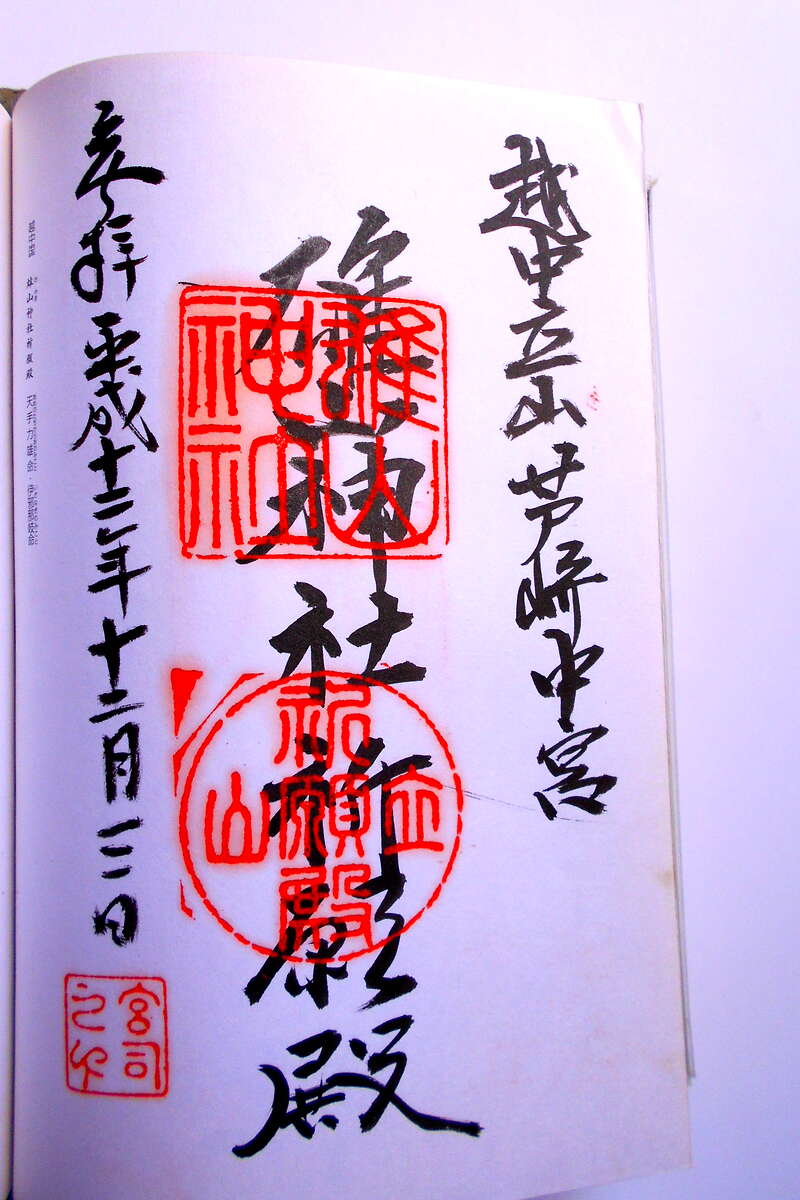 越中立山芦峅中宮
雄山神社祈願殿
雄山
神社
立山
祈願殿
参拝 平成十三年十二月三日
宮司
之印
雄山神社祈願殿 天手力雄命・伊邪那岐命